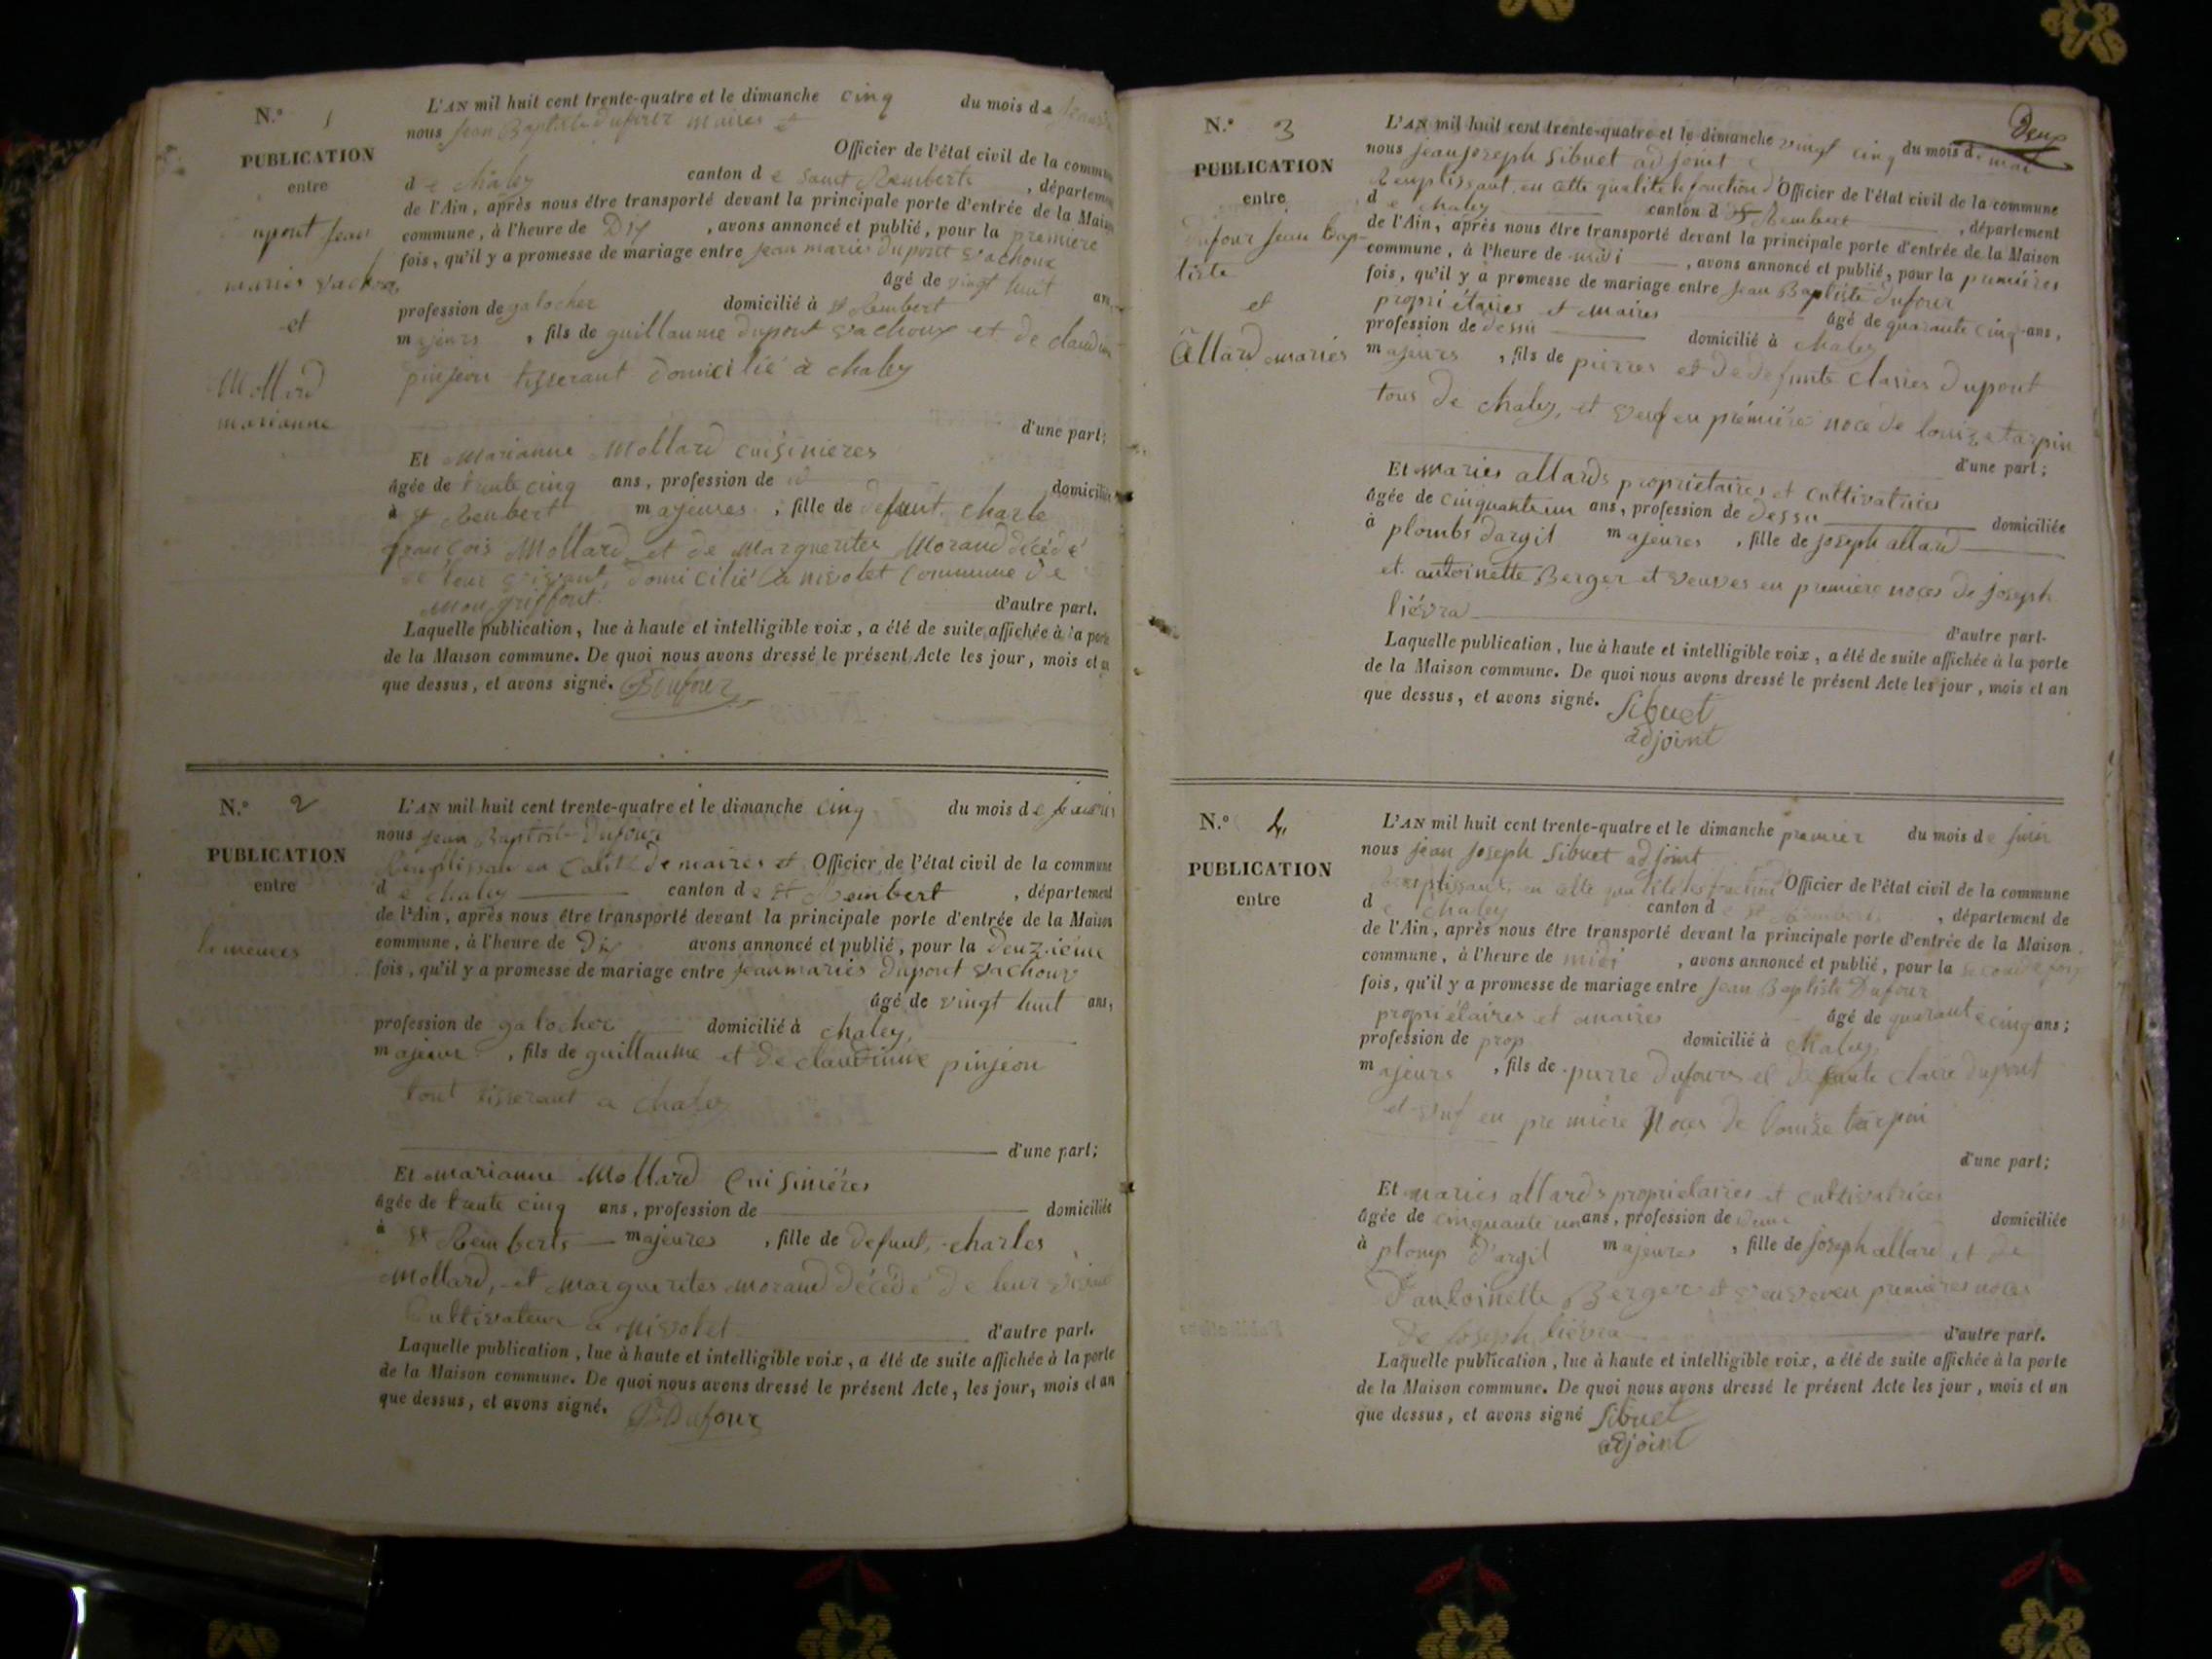 N.º 1
PUBLICATION
entre
upont Jean
maries vachou
et
Mollard
marianne
L'AN mil huit cent trente-quatre et le dimanche cinq du mois de
nous Jean Baptiste Dufour maires et
Officier de l'état civil de la commune
de chaley canton de saint Remberts , département
de l'Ain, après nous être transporté devant la principale porte d'entrée de la Maison
commune, à l'heure de Dix , avons annoncé et publié, pour la premiere
fois, qu'il y a promesse de mariage entre Jean maries dupont vachoux
âgé de vingt huit ans
profession de galocher domicilié à St Rembert
majeurs , fils de guillaume dupont vachoux et de claudine
pinjeon tisserant domicilié à chaley
d'une part;
Et Marianne Mollard cuisinieres
âgée de trente cinq ans, profession de domiciliée
à St Rembert majeures , fille de defunt charle
françois Mollard et de Marguerites Morand décédé
de leur vivant, domicilié à nivolet commune de
Mon griffont. d'autre part.
Laquelle publication, lue à haute et intelligible voix, a été de suite affichée à la porte
de la Maison commune. De quoi nous avons dressé le présent Acte les jour, mois et an
que dessus, et avons signé. Dufour
N.º 2
PUBLICATION
entre
le memes
L'AN mil huit cent trente-quatre et le dimanche cinq du mois de
nous Jean Baptiste Dufour
Remplissan en calité de maires et Officier de l'état civil de la commune
de chaley canton de St Rembert , département
de l'Ain, après nous être transporté devant la principale porte d'entrée de la Maison
commune, à l'heure de Dix avons annoncé et publié, pour la Deuzieme
fois, qu'il y a promesse de mariage entre Jean maries dupont vachoux
âgé de vingt huit ans,
profession de galocher domicilié à chaley,
majeur , fils de guillaume et de claudinne pinjeon
tout tisserant a chaley
d'une part;
Et marianne Mollard Cuisiniéres
âgée de trente cinq ans, profession de domiciliée
à St Remberts majeures , fille de defunt, charles
Mollard, et marguerites morand décédé de leur vivant
Cultivateur a nivolet d'autre part.
Laquelle publication, lue à haute et intelligible voix, a été de suite affichée à la porte
de la Maison commune. De quoi nous avons dressé le présent Acte, les jour, mois et an
que dessus, et avons signé. Dufour
Deux
N.º 3
PUBLICATION
entre
dufour Jean bap-
tiste
et
Allard maries
L'AN mil huit cent trente-quatre et le dimanche vingt cinq du mois de mai
nous jean joseph Sibuet adjoint
Remplissant en cette qualité le fonction d'Officier de l'état civil de la commune
de chaley canton d St Rembert , département
de l'Ain, après nous être transporté devant la principale porte d'entrée de la Maison
commune, à l'heure de midi , avons annoncé et publié, pour la premières
fois, qu'il y a promesse de mariage entre Jean Baptiste Dufour
propriétaires et maires âgé de quarante cinq ans,
profession de dessu domicilié à chaley
majeurs , fils de pierres et de defunte Claries dupont
tous de chaley, et veuf en première noce de louize tarpin
d'une part;
Et maries allards propriétaires et cultivatrices
âgée de cinquante un ans, profession de dessu domiciliée
à plombs dargil majeures , fille de joseph allard
et antoinette Berger et veuves en premiere noces de joseph
liévra
d'autre part-
Laquelle publication, lue à haute et intelligible voix, a été de suite affichée à la porte
de la Maison commune. De quoi nous avons dressé le présent Acte les jour, mois et an
que dessus, et avons signé. Sibuet
adjoint
N.º 4
PUBLICATION
entre
L'AN mil huit cent trente-quatre et le dimanche premier du mois de juin
nous jean joseph Sibuet adjoint
Remplissant en cette qualité les fonction Officier de l'état civil de la commune
de chaley canton de St Rembert , département de
de l'Ain, après nous être transporté devant la principale porte d'entrée de la Maison
commune, à l'heure de midi , avons annoncé et publié, pour la seconde fois
fois, qu'il y a promesse de mariage entre Jean Baptiste Dufour
propriétaires et maires âgé de quarante cinq ans;
profession de prop domicilié à Chaley
majeurs , fils de pierre dufours et defunte claire dupont
et veuf en premiere Noces de louise tarpin
d'une part;
Et maries allards propriétaires et cultivatrices
âgée de cinquante un ans, profession de domiciliée
à plomp d'argil majeures , fille de joseph allard et de
d'antoinette Berger et veuve en premières noces
de Joseph liévra d'autre part.
Laquelle publication, lue à haute et intelligible voix, a été de suite affichée à la porte
de la Maison commune. De quoi nous avons dressé le présent Acte les jour, mois et an
que dessus, et avons signé Sibuet
adjoint